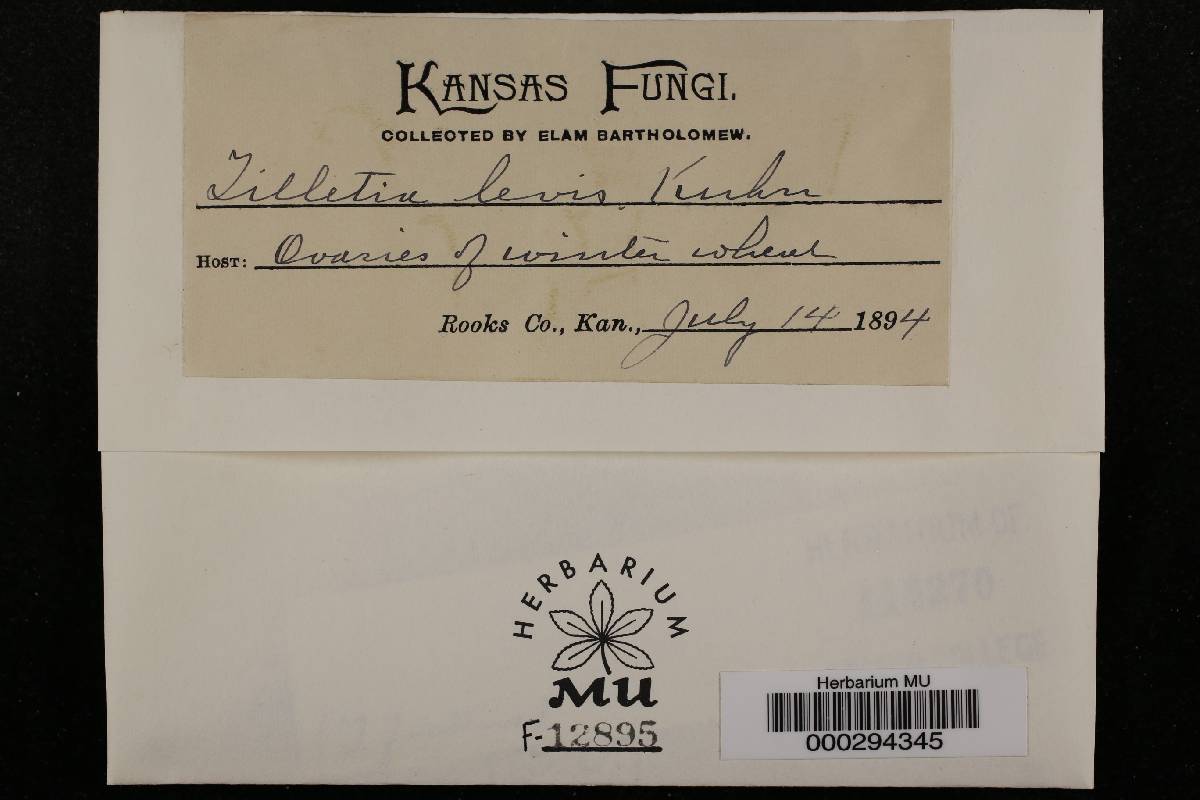 KANSAS FUNGI.
COLLECTED BY ELAM BARTHOLOMEW.
Tilletia levis Kuhn
HOST: Ovaries of winter wheat
Rooks Co., Kan., July 14 1894
HERBARIUM
MU
F-12895
Herbarium MU
000294345